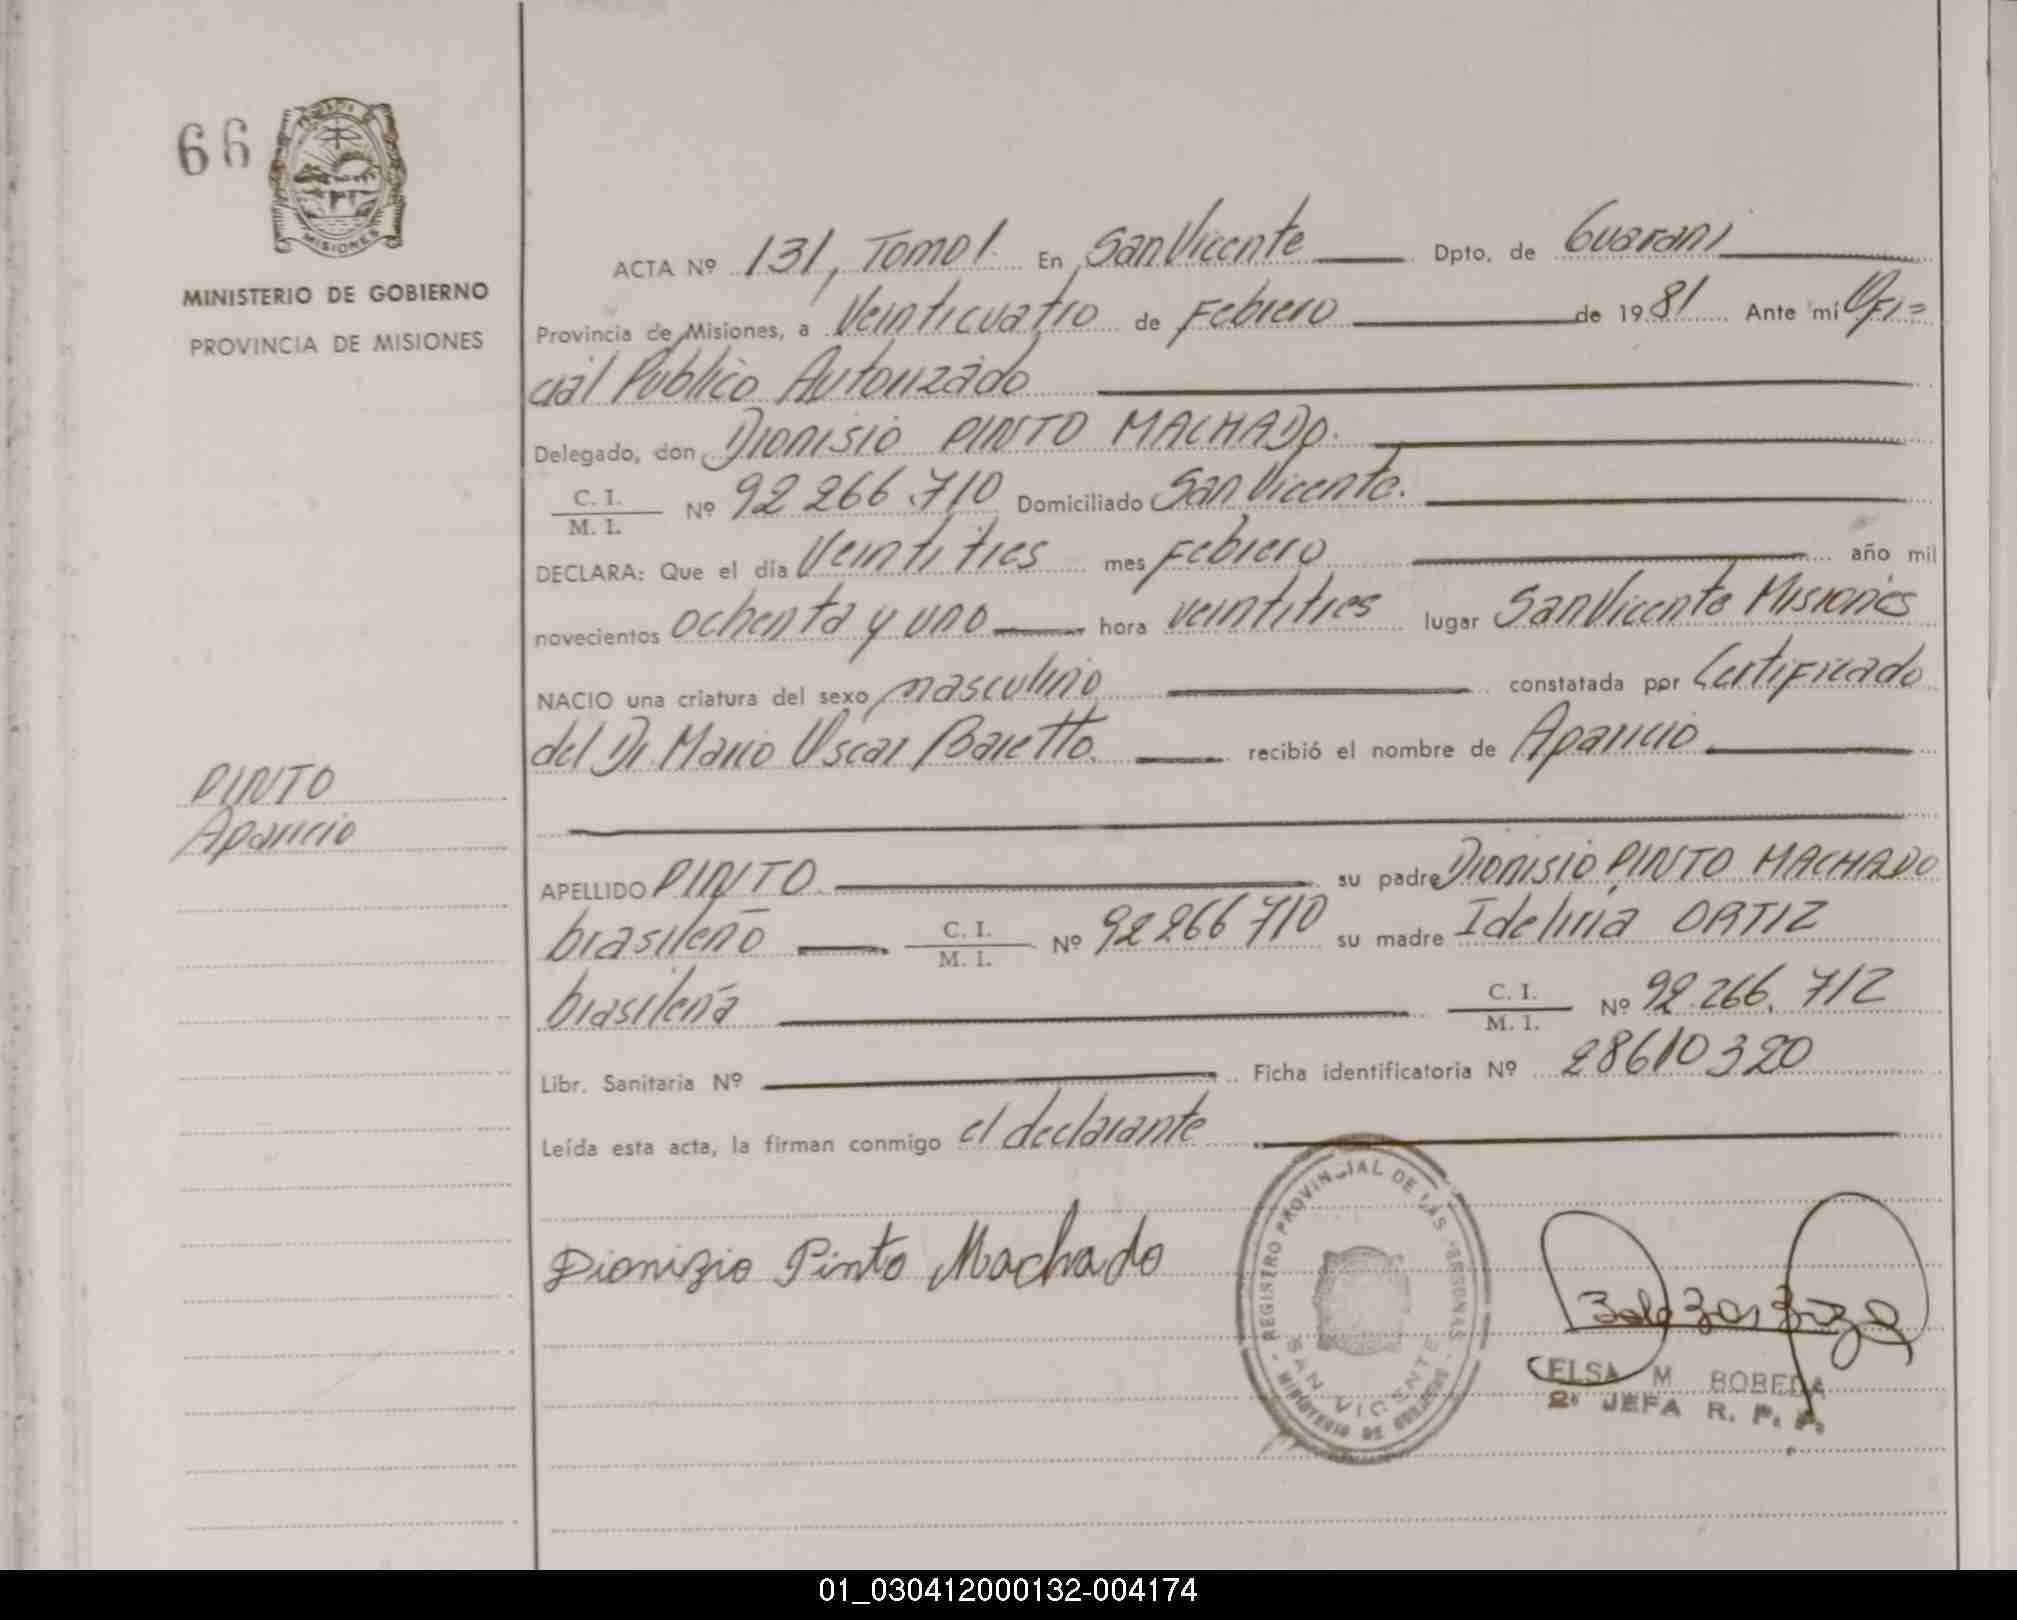 66
MISIONES
MINISTERIO DE GOBIERNO
PROVINCIA DE MISIONES
PINTO
Aparicio
ACTA Nº 131, Tomo 1. En San Vicente Dpto. de Guarani
Provincia de Misiones, a Veinticuatro de Febrero de 1981 Ante mi Ofi=
cial Público Autorizado
Delegado, don Dionisio PINTO MACHADO.
C. I. / M. I. Nº 92 266.710 Domiciliado San Vicente.
DECLARA: Que el dia Veintitres mes Febrero año mil
novecientos ochenta y uno hora veintitres lugar San Vicente Misiones
NACIO una criatura del sexo masculino constatada por Certificado
del Dr. Mario Oscar Baretto. recibió el nombre de Aparicio
APELLIDO PINTO su padre Dionisio PINTO MACHADO
brasileño C. I. / M. I. Nº 92 266 710 su madre Idelina ORTIZ
brasileña C. I. / M. I. Nº 92.266.712
Libr. Sanitaria Nº Ficha identificatoria Nº 28610320
Leída esta acta, la firman conmigo el declarante
Dionizio Pinto Machado
REGISTRO PROVINCIAL DE LAS PERSONAS
SAN VICENTE
MINISTERIO DE GOBIERNO
ELSA M BOBEDA
2ª JEFA R. P. P.
01_030412000132-004174